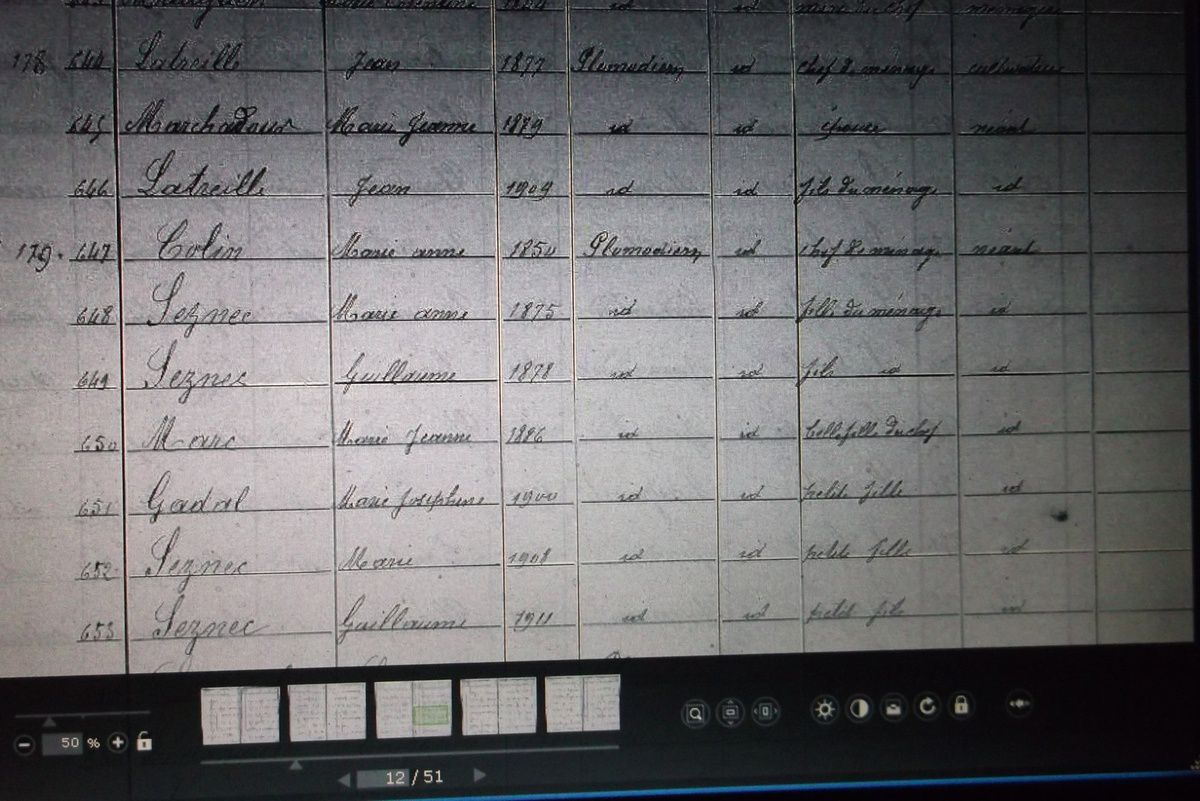 178 644 Latreille Jean 1877 Plomodiern id chef de ménage cultivateur
645 Marchadour Marie Jeanne 1879 id id épouse néant
646 Latreille Jean 1909 id id fils du ménage id
179 647 Colin Marie anne 1850 Plomodiern id chef de ménage néant
648 Seznec Marie anne 1875 id id fille du ménage id
649 Seznec Guillaume 1878 id id fils id id
650 Marc Marie Jeanne 1886 id id belle fille du chef id
651 Gadal Marie Josephine 1900 id id petite fille id
652 Seznec Marie 1908 id id petite fille id
653 Seznec Guillaume 1911 id id petit fils id
50 %
12 / 51